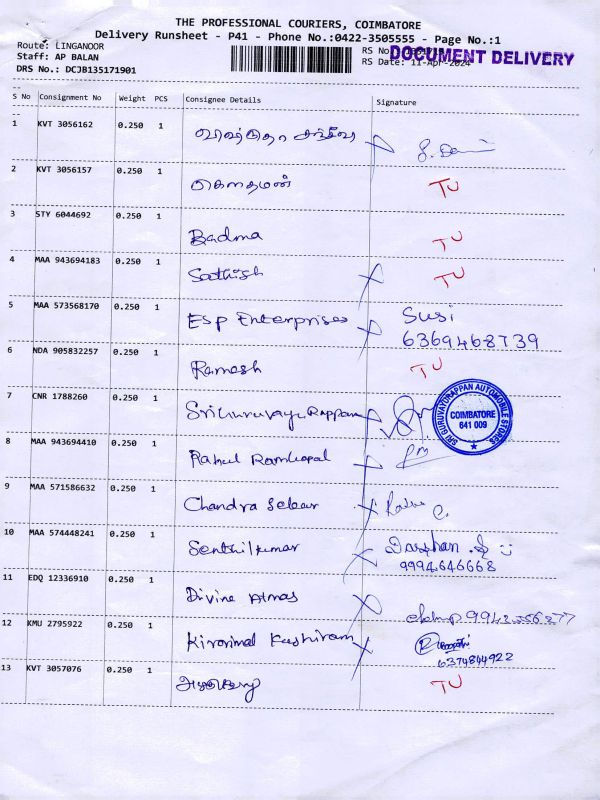 THE PROFESSIONAL COURIERS, COIMBATORE
Delivery Runsheet - P41 - Phone No.:0422-3505555 - Page No.:1
Route: LINGANOOR
Staff: AP BALAN
DRS No.: DCJB135171901
RS No
DOCUMENT DELIVERY
RS Date: 11-Apr-2024
S No Consignment No Weight PCS Consignee Details Signature
1 KVT 3056162 0.250 1
2 KVT 3056157 0.250 1 கௌதமன் TU
3 STY 6044692 0.250 1 Badma TU
4 MAA 943694183 0.250 1 Sathish TU
5 MAA 573568170 0.250 1 Esp Enterprises Susi
6369468739
6 NDA 905832257 0.250 1 Ramesh TU
7 CNR 1788260 0.250 1 Sri Guruvayu Rappan
SRI GURUVAYURAPPAN AUTOMOBILE STORES
COIMBATORE
641 009
8 MAA 943694410 0.250 1 Rahul Ramgopal
9 MAA 571586632 0.250 1 Chandra Sekar
10 MAA 574448241 0.250 1 Senthilkumar Darshan
9994646668
11 EDQ 12336910 0.250 1 Divine Atmas
12 KMU 2795922 0.250 1 Kirorimal Kashiram
6374844922
13 KVT 3057076 0.250 1 TU